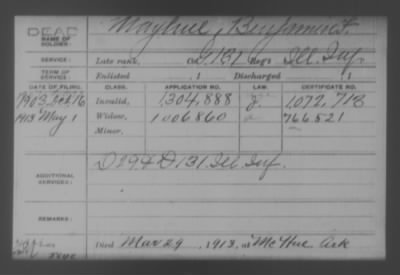 DEAD
NAME OF SOLDIER:
Mayhue, Benjamin F.
SERVICE:
Late rank, Co. G 131 Reg't Ill. Inf.
TERM OF SERVICE:
Enlisted , 1 Discharged , 1
DATE OF FILING. CLASS. APPLICATION NO. LAW. CERTIFICATE NO.
1903 Feb 16 Invalid, 1,304,888 1,072,713
1913 May 1 Widow, 1006860 766.821
Minor,
ADDITIONAL SERVICES:
D 29 & D 131. Ill. Inf.
REMARKS:
Died Mar 29, 1913, at McHue Ark